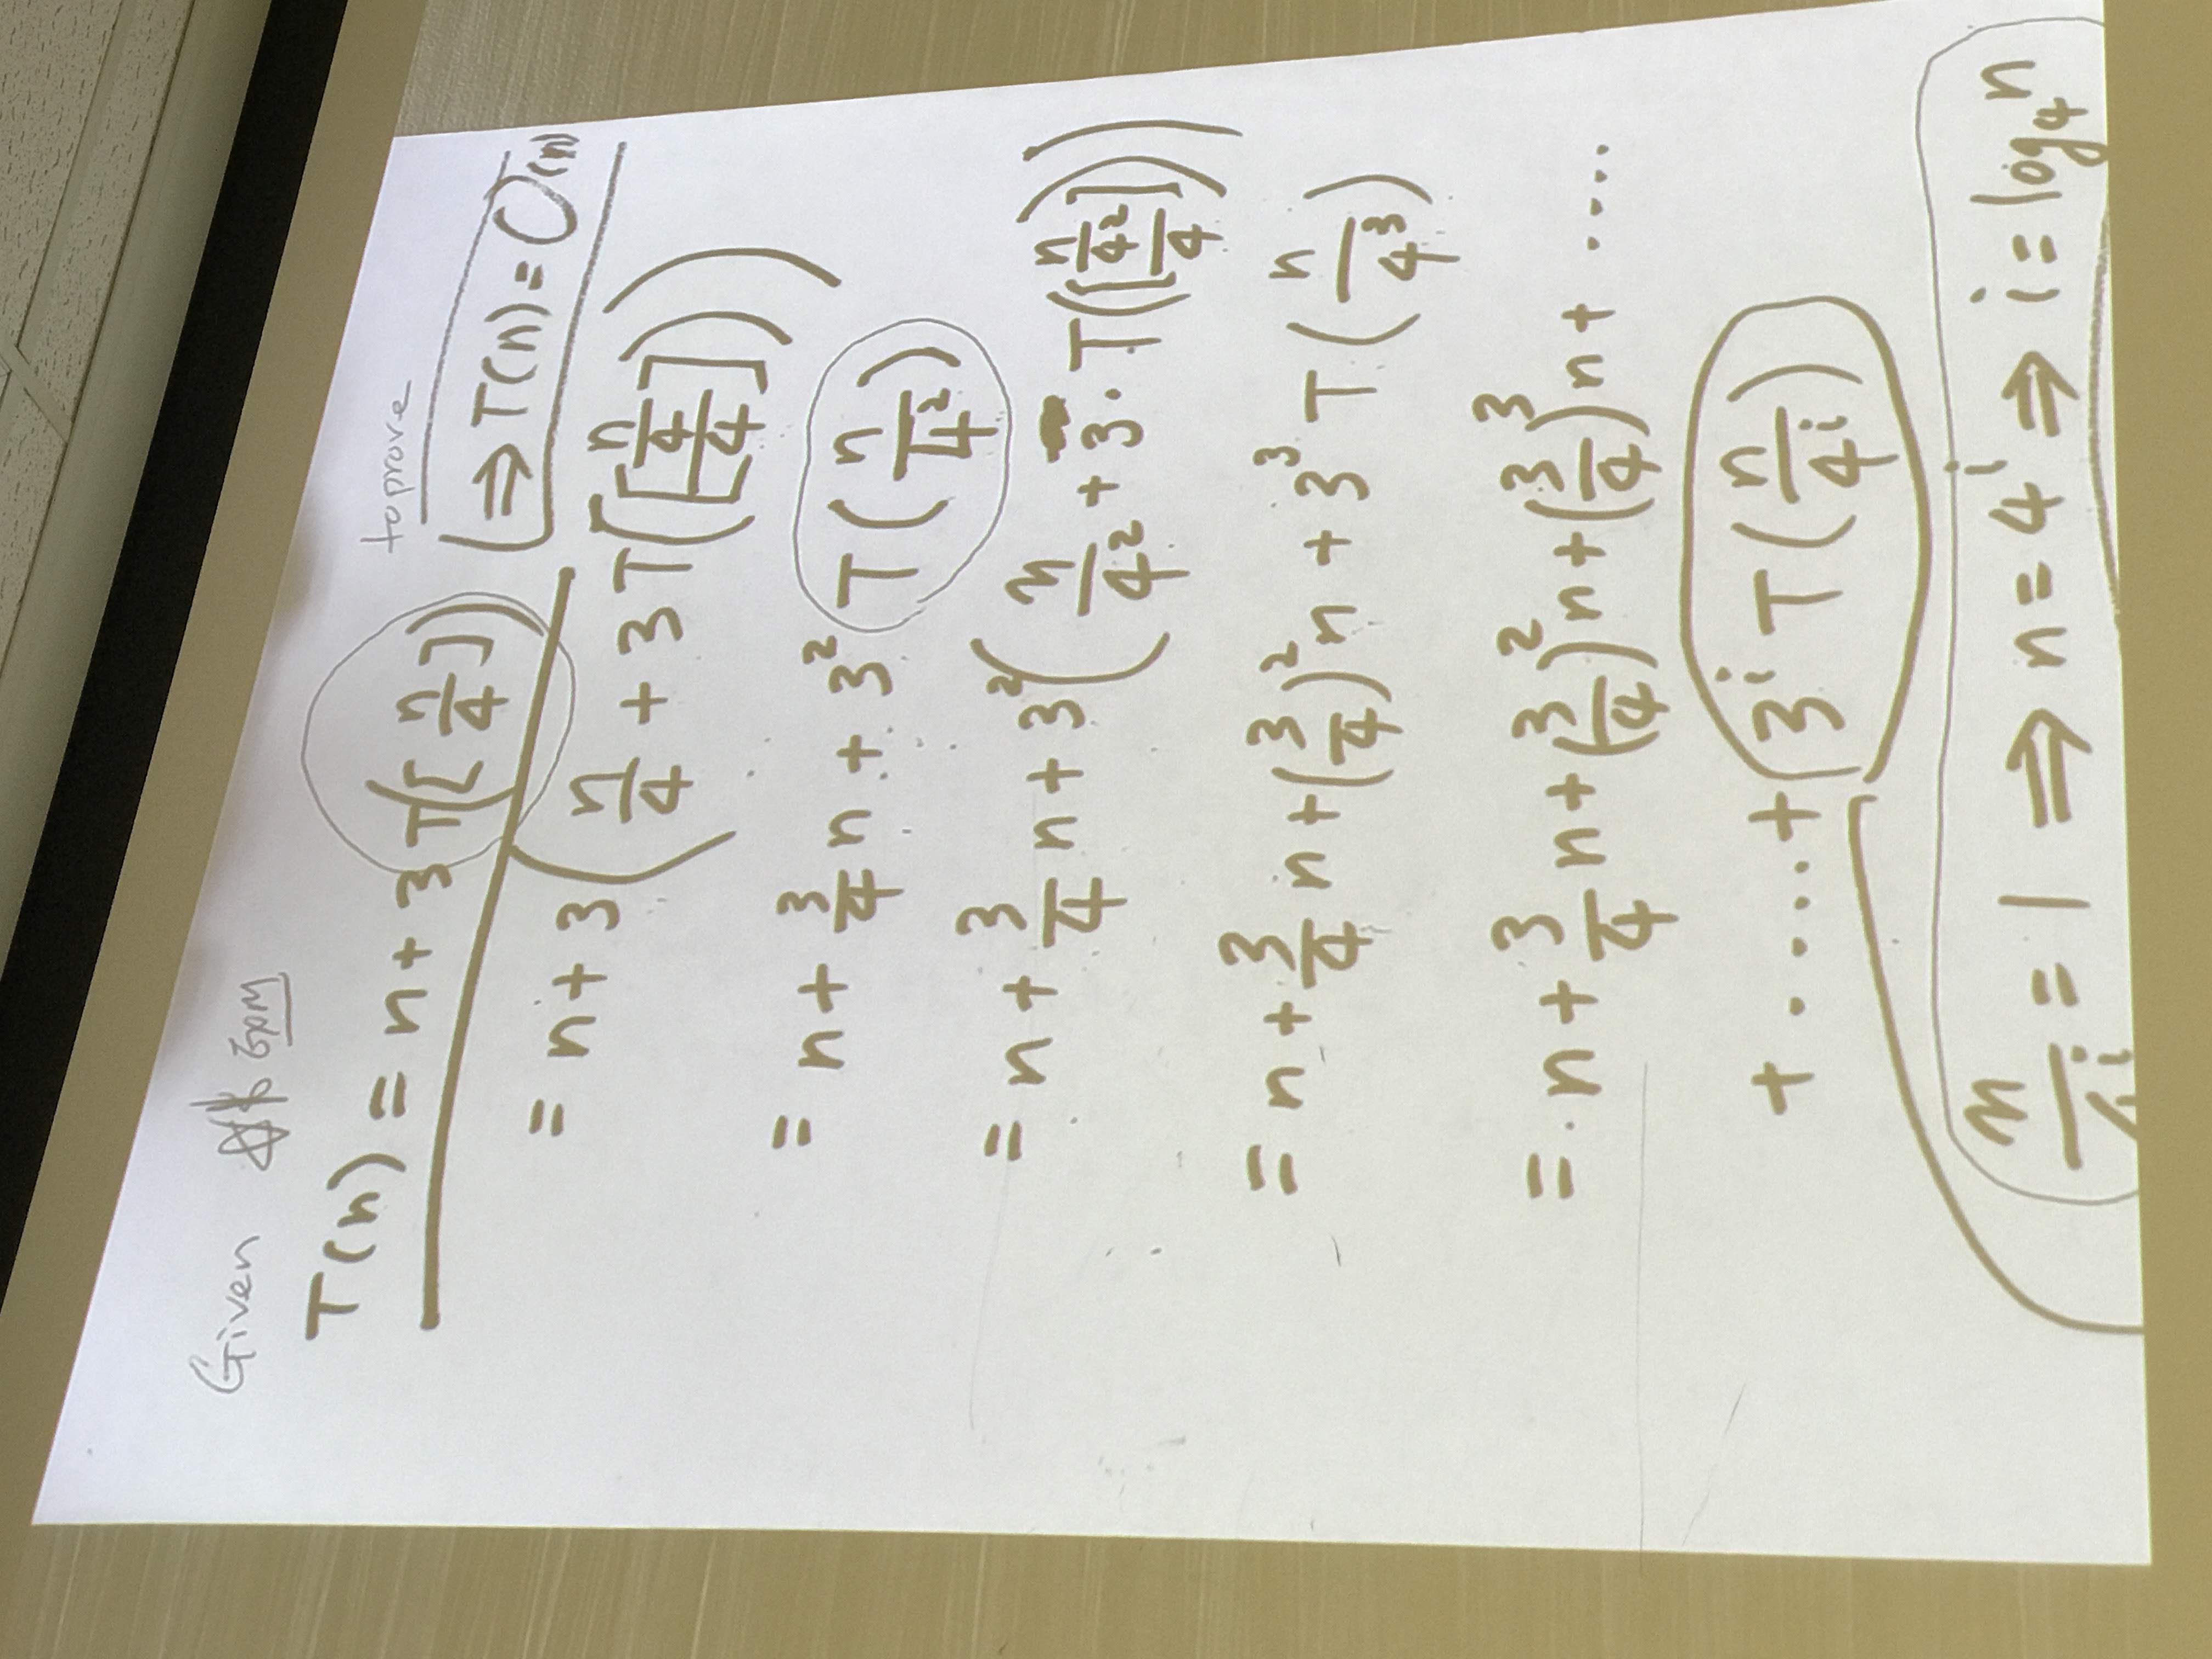 Given Exm
T(n) = n + 3T([n/4])
to prove
⇒ T(n) = O(n)
= n + 3(n/4 + 3T([n/4/4]))
= n + 3/4 n + 3² T(n/4²)
= n + 3/4 n + 3²(n/4² + 3 · T([n/4²/4]))
= n + 3/4 n + (3/4)² n + 3³ T(n/4³)
= n + 3/4 n + (3/4)² n + (3/4)³ n + ....
+ ..... + 3ⁱ T(n/4ⁱ)
n/4ⁱ = 1 ⇒ n = 4ⁱ ⇒ i = log₄n